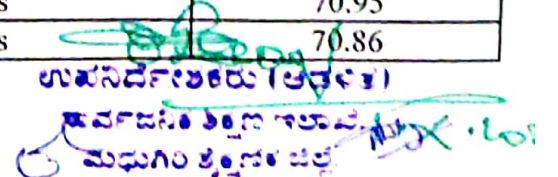 s 70.95
s 70.86
ಉಪನಿರ್ದೇಶಕರು (ಆಡಳಿತ)
ಸಾರ್ವಜನಿಕ ಶಿಕ್ಷಣ ಇಲಾಖೆ
ಮಧುಗಿರಿ ಶೈಕ್ಷಣಿಕ ಜಿಲ್ಲೆ